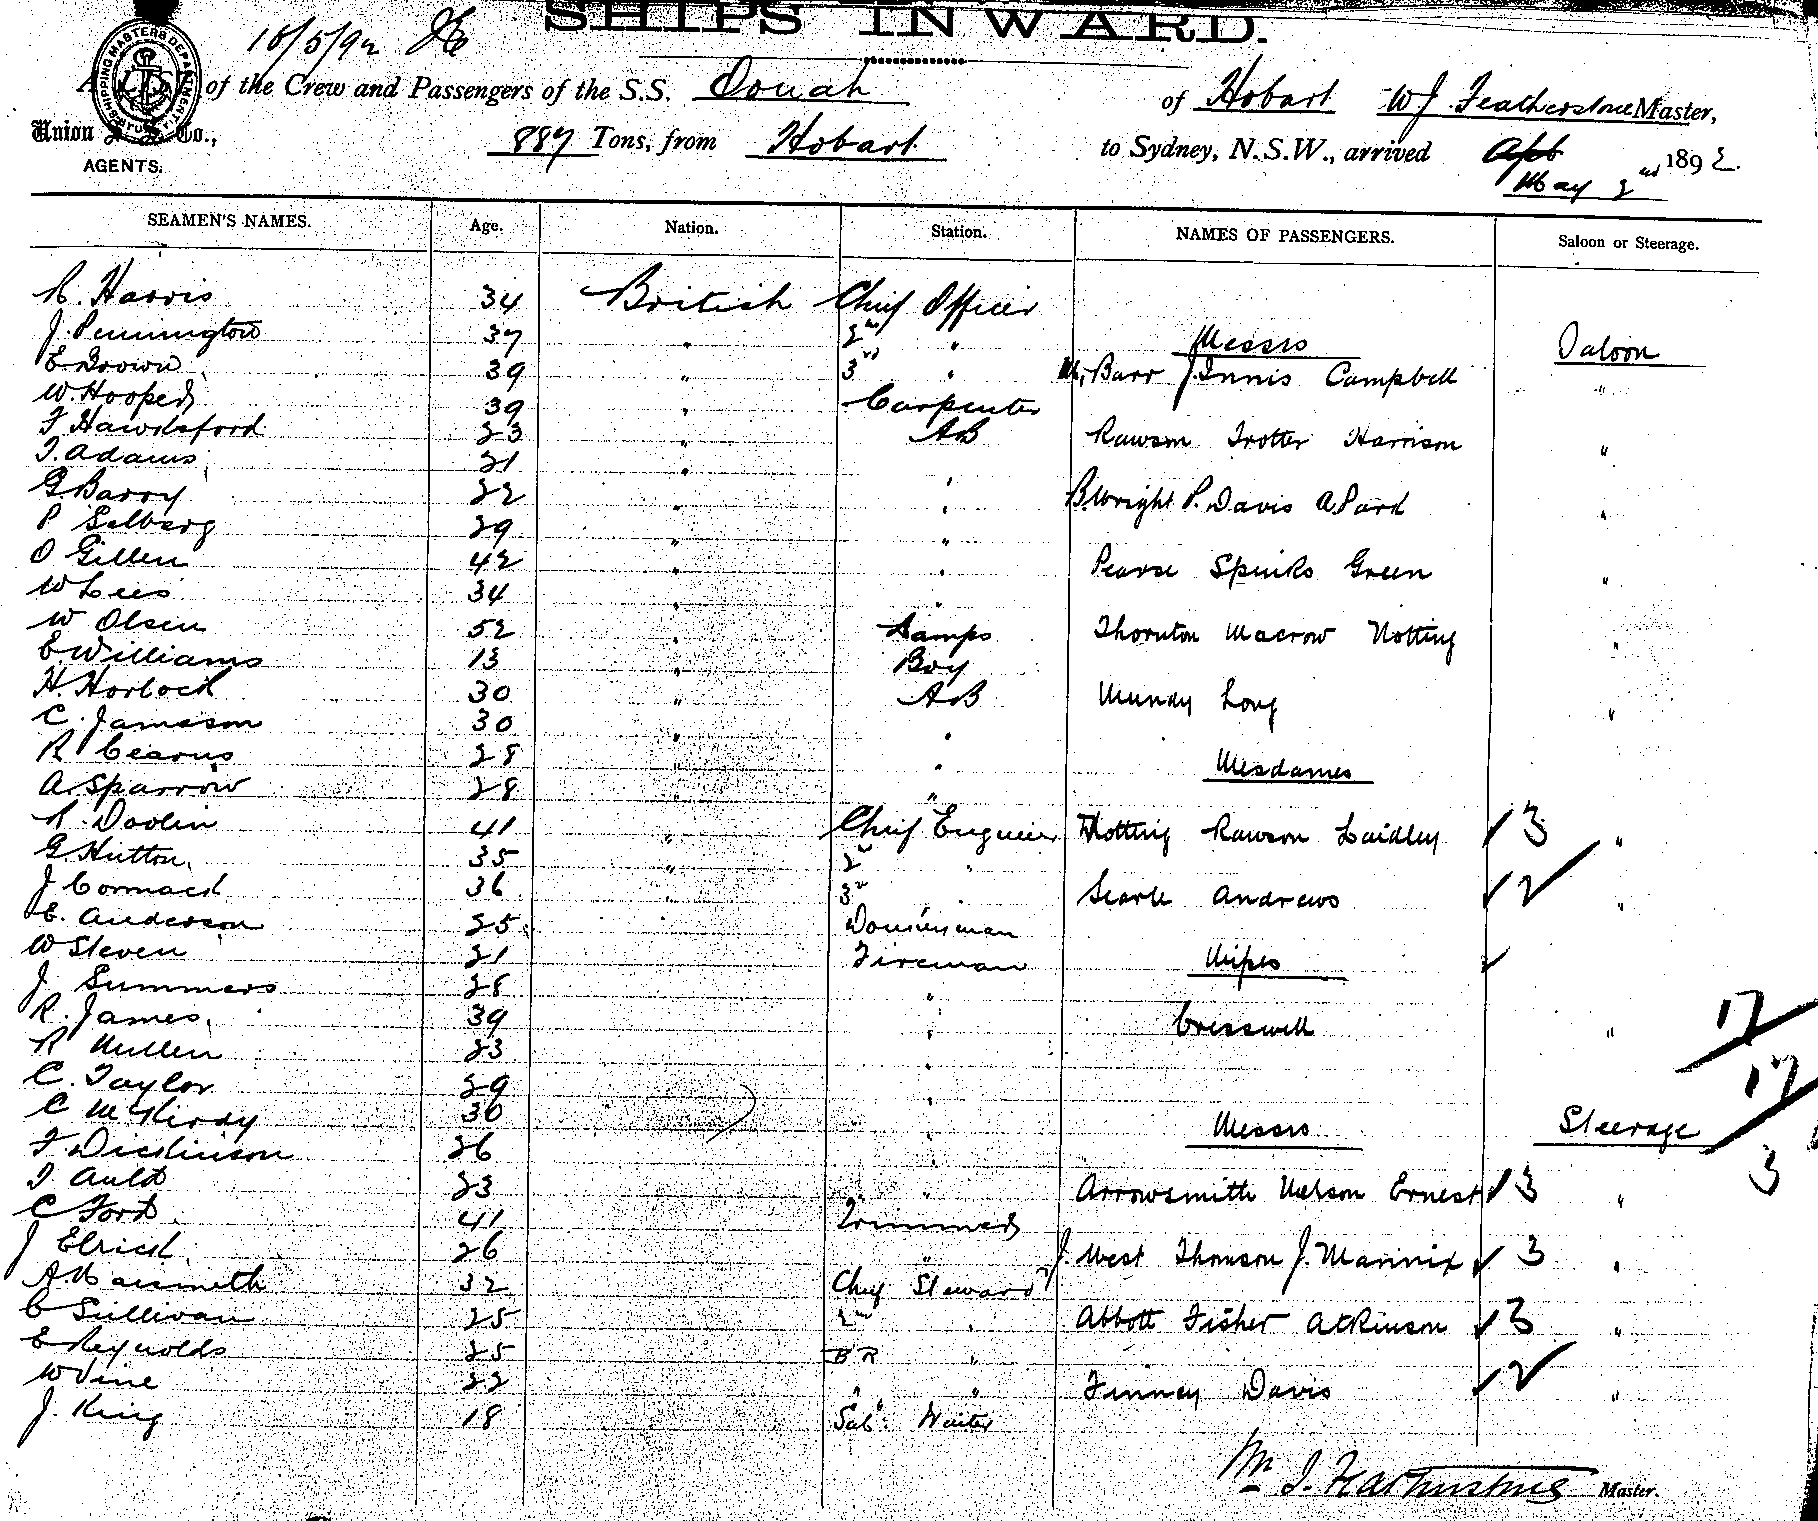 SHIPS INWARD.
16/5/92
A LIST of the Crew and Passengers of the S.S. Oonah of Hobart W J Featherstone Master,
Union S. S. Co., 887 Tons, from Hobart to Sydney, N.S.W., arrived May 2nd 1892.
AGENTS.
SEAMEN'S NAMES. Age. Nation. Station. NAMES OF PASSENGERS. Saloon or Steerage.
R. Harris 34 British Chief Officer
J. Pennington 37 " 2nd " Messrs Saloon
E Brown 39 " 3rd " Barr J. Innis Campbell "
W. Hooper 39 " Carpenter
F Hawksford 23 " AB Rawson Trotter Harrison "
T. Adams 21 "
G Barry 22 " " B. Wright P. Davis A Pard "
P Selberg 29 " "
O Gillen 42 " " Pearse Spinks Green "
W Lees 34 " "
W Olsen 52 " Lamps Thornton Macrow Notting "
E Williams 13 " Boy
H. Horlock 30 " AB Mundy Long "
C. Jameson 30 " "
R Cearns 28 " " Mesdames
A Sparrow 28 " "
R. Doolin 41 " Chief Engineer Notting Rawson Laidley 3 "
G Hutton 35 " 2nd "
J Cormack 36 " 3rd " Searle Andrews 2 "
E. Anderson 25 Donkeyman
W Steven 21 Fireman Misses
J. Summers 28 "
R. James 39 " Cresswell " 17
R Mullen 23 "
C. Taylor 29 " 17
C McKirdy 30 " Messrs Steerage
F Dickinson 26 " 3
T Auld 23 " Arrowsmith Nelson Ernest 3 "
C Ford 41 Trimmer
J Elrick 26 " J. West Thomson J. Mannix 3 "
A Naismith 32 Chief Steward
C Sullivan 25 2nd " Abbott Fisher Atkinson 3 "
E Reynolds 25 B R "
W Vine 22 " " Finney Davis 2 "
J. King 18 Sal: Waiter
Wm J. Featherstone Master.